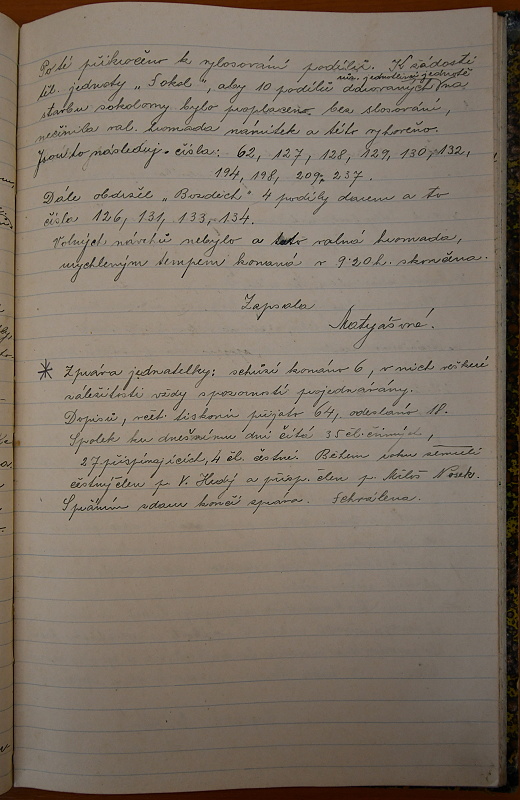 Poté přikročeno k vylosování podílů. K žádosti
tit. jednoty „Sokol", aby 10 podílů darovaných na
stavbu sokolovny bylo proplaceno bez slosování,
nečinila val. hromada námitek a této vyhověno.
Jsou to následuj. čísla: 62, 127, 128, 129, 130, 132,
194, 198, 209, 237.
Dále obdržel „Bozděch" 4 podíly darem a to
čísla 126, 131, 133, 134.
Volných návrhů nebylo a tato valná hromada,
urychleným tempem konaná v 9·20 h. skončena.
Zapsala
Matyášová.
* Zpráva jednatelky: schůzí konáno 6, v nich veškeré
záležitosti vždy s pozorností projednávány.
Dopisů, včet. tiskovin přijato 64, odesláno 18.
Spolek ku dnešnímu dni čítá 35 čl. činných,
27 přispívajících, 4 čl. čestné. Během roku zemřeli
čestný člen p. V. a přisp. člen p. Miloš Nosek.
Spolku zdam končí zpráva. Schválena.